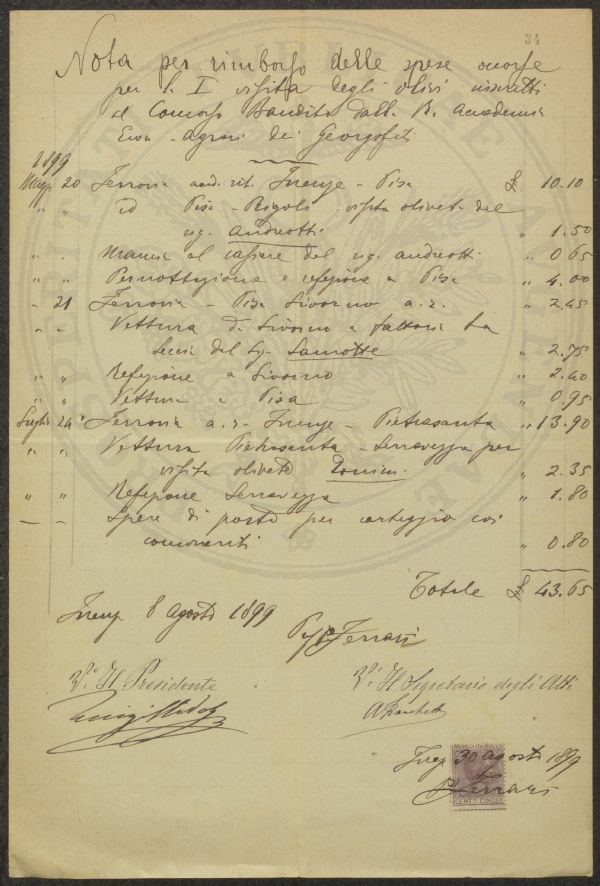 34
Nota per rimborso delle spese occorse
per la I visita degli olivi inscritti
al Concorso Bandito dalla R. Accademia
Econ. agraria dei Georgofili
1899
Magg. 20 Ferrovia and. rit. Firenze - Pisa £ 10.10
" " id Pisa - Rigoli visita oliveto del
sig. Andreotti " 1.50
" " Mancia al del sig. Andreotti " 0.65
" " Pernottazione e refezione a Pisa " 4.00
" 21 Ferrovia - Pisa Livorno a. r. " 2.45
" " Vettura da Livorno a fattoria La
del Sig. " 2.75
" " Refezione a Livorno " 2.40
" " Vettura a Pisa " 0.95
Luglio 24 Ferrovia a. r. Firenze - Pietrasanta " 13.90
" " Vettura Pietrasanta - Serravezza per
visita oliveto " 2.35
" " Refezione Serravezza " 1.80
— — Spese di posta per carteggio coi
concorrenti " 0.80
Totale £ 43.65
Firenze 8 agosto 1899
Ferrari
V.° Il Presidente
V.° Il Segretario degli Atti
Luigi
Firenze 30 agosto 1899
MARCA DA BOLLO
Ferrari
CENT. CINQUE